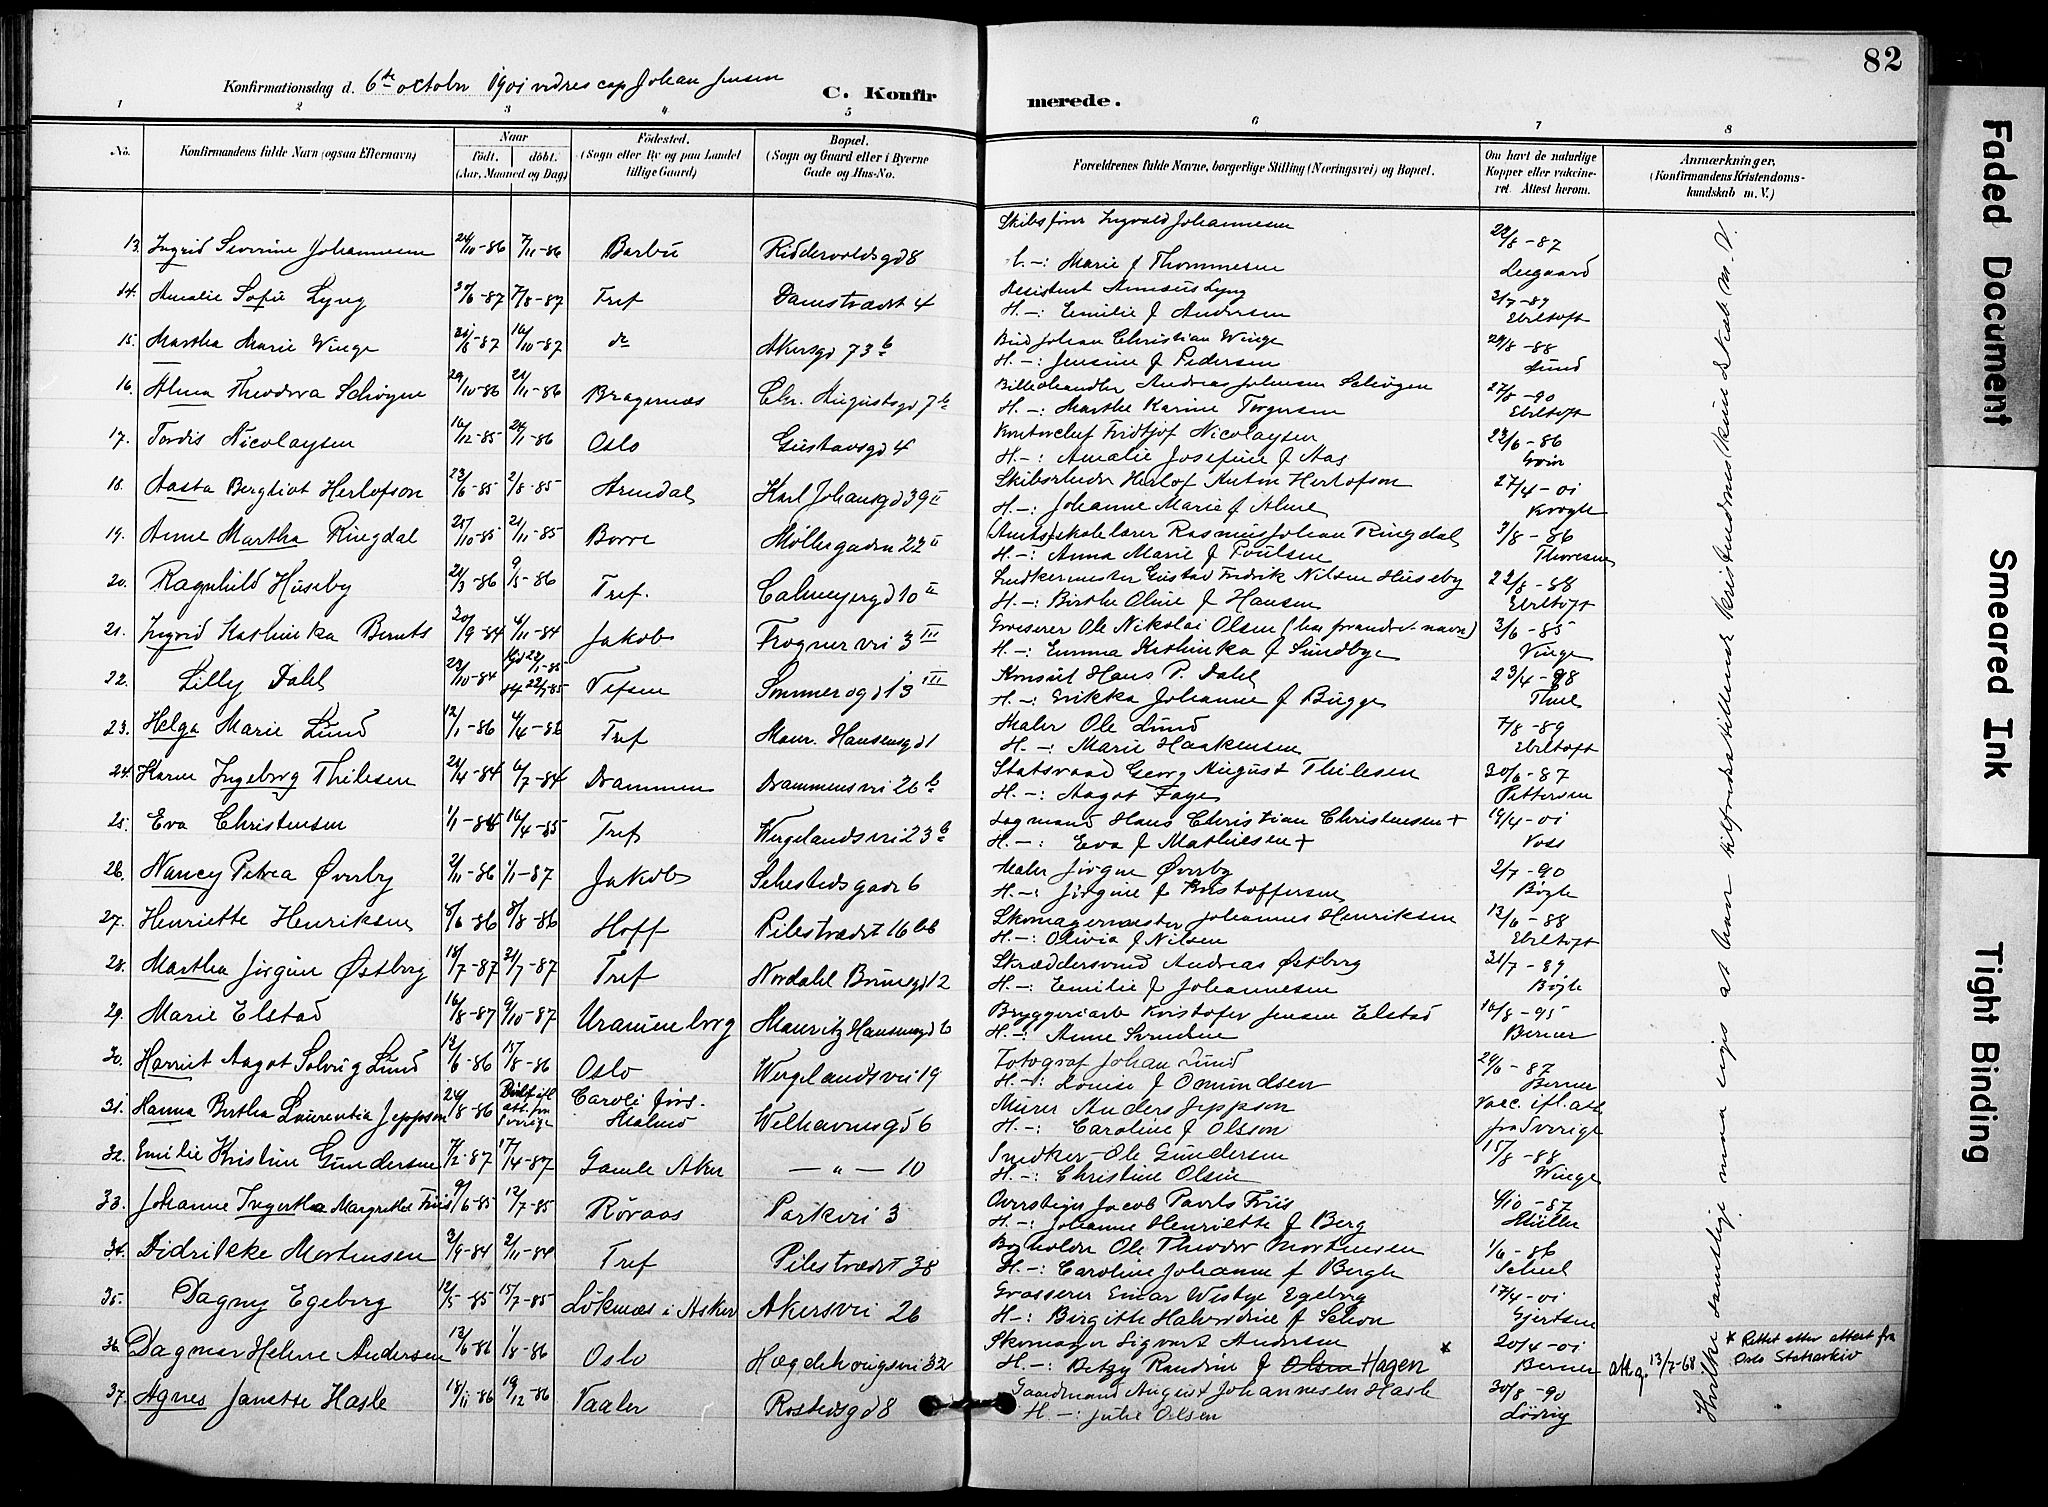 82
Konfirmationsdag d. 6te octobr 1901 Johan Jensen
C. Konfirmerede.
1 2 3 4 5 6 7 8
No.
Konfirmandens fulde Navn (ogsaa Efternavn)
Naar
födt. döbt.
(Aar, Maaned og Dag)
Födested.
(Sogn eller By og paa Landet
tillige Gaard)
Bopæl.
(Sogn og Gaard eller i Byerne
Gade og Hus-No.
Forældrenes fulde Navne, borgerlige Stilling (Næringsvei) og Bopæl.
Om havt de naturlige
Kopper eller vakcine-
ret. Attest herom.
Anmærkninger,
(Konfirmandens Kristendoms-
kundskab m. V.)
Skibsförer Ingvald Johannesen
13. Ingrid Severine Johannesen 24/10-86 7/11-86 Barbu Riddervoldsgd 8 29/8-87
Marie f Thommesen
14. Amalie Sofie Lyng 7/8-87 Tref Damstrædet 4 Assistent Lyng
H.-: Emilie f Andersen Ebeltoft
15. Martha Marie Winge 16/10-87 do Akersgd 73 b Bud Johan Christian Winge 29/8-88
H.-: Jensine f Pedersen Lund
16. Alma Theodora Schöyen 29/10-86 21/11-86 Bragernæs Chr. Augustsgd 7 b Andreas Johnsen Schöyen 27/8-90
H.-: Marthe Karine Torgersen Ebeltoft
17. Tordis Nicolaysen 16/12-85 24/1-86 Oslo Gustavsgd 4 Kontorchef Fridtjof Nicolaysen 23/6-86
H.-: Amalie Josefine f Aas
18. Aasta Bergliot Herlofson 23/6-85 2/8-85 Arendal Karl Johansgd 39 II Skibsreder Herlof Anton Herlofson 27/4-01
H.-: Johanne Marie f
19. Anne Martha Ringdal 25/10-85 21/11-85 Borre Möllergaden 22 II (Amts)skolelærer Rasmus Johan Ringdal 3/8-86
H.-: Anna Marie f Poulsen Thoresen
20. Ragnhild Huseby 21/3-86 9/5-86 Tref. Calmeyergd 10 II Snedkermester Gustav Fredrik Nilsen Huseby 22/8-88
H.-: Birthe Oline f Hansen Ebeltoft
21. Ingrid Kathinka Bernts 20/9-84 4/11-84 Jakob Frognervei 3 III Grosserer Ole Nikolai Olsen (har forandr. navn) 3/6-85
H.-: Emma Kathinka f Sundbye Vinge
22. Lilly Dahl 23/10-84 Vefsen Sommerogd 13 III Konsul Hans P. Dahl 23/4-98
H.-: Erikka Johanne f Bugge
23. Helga Marie Lund 12/1-86 4/4-86 Tref Maur. Hansensgd 1 Maler Ole Lund 7/8-89
H.-: Marie Haakensen Ebeltoft
24. Karen Ingeborg Thilesen 21/4-84 6/7-84 Drammen Drammensvei 26 b Statsraad Georg August Thilesen 30/6-87
H.-: Aagot Faye Pettersen
25. Eva Christensen 16/4-85 Tref Wergelandsvei 23 b Lagmand Hans Christian Christensen + 19/4-01
H.-: Eva f Mathiesen + Voss
26. Nancy Petrea Øverby 2/11-86 1/1-87 Jakob Sehestedsgade 6 Maler Jörgen Øverby 2/7-90
H.-: Jörgine f Kristoffersen Bögh
27. Henriette Henriksen 8/6-86 8/8-86 Hoff Pilestrædet 16 bb Skomagermester Johannes Henriksen 13/6-88
H.-: Olivia f Nilsen Ebeltoft
28. Martha Jörgine Østberg 10/7-87 31/7-87 Tref Nordahl Brunsgd 12 Skræddersvend Andreas Østberg 31/7-89
H.-: Emilie f Johannesen Bögh
29. Marie Elstad 16/8-87 9/10-87 Uranienborg Mauritz Hansensgd 6 Bryggeriarb Kristofer Jensen Elstad 16/8-95
H.-: Anne Svendsen Berner
30. Harriet Aagot Solveig Lund 13/6-86 15/8-86 Oslo Wergelandsvei 19 Fotograf Johan Lund 24/6-87
H.-: Louise f Omundsen Berner
31. Hanna Bertha Laurentia Jeppson 24/8-86 Döbt ifl att. fra Sverige Caroli förs. Malmö Welhavensgd 6 Murer Anders Jeppson Vacc. ifl. att
H.-: Caroline f Olsson fra Sverige
32. Emilie Kristine Gundersen 7/2-87 17/4-87 Gamle Aker — „ — 10 Snedker Ole Gundersen 15/8-88
H.-: Christine Olsen Winge
33. Johanne Ingertha Margrethe Friis 9/6-85 12/7-85 Röraas Parkvei 3 Overstiger Jacob Pavels Friis 4/10-87
H.-: Johanne Henriette f Berg Müller
34. Didrikke Mortensen 3/9-84 2/11-84 Tref Pilestrædet 38 Bogholder Ole Theodor Mortensen 1/6-86
H.-: Caroline Johanne f Bergh Scheel
35. Dagny Egeberg 12/5-85 15/7-85 Löknæs i Asker Akersvei 26 Grosserer Einar Westye Egeberg 17/4-01
H-: Birgitte Halvordine f Schou Gjertsen
36. Dagmar Helene Andersen 13/6-86 1/8-86 Oslo Hægdehougsvei 32 Skomager Sigvart Andersen 20/4-01
H.-: Betzy Randine f Olsen Hagen * Berner Att.g. 13/2-68 * Rettet etter attest fra
Oslo Statsarkiv
37. Agnes Janette Hasle 18/11-86 19/12-86 Vaaler Rostedsgd 8 Gaardmand August Johannesen Hasle 30/8-90
H.-: Julie Olsen
Hvilke samtlige maa siges at have tilfredsstillende kristendomskundskab m. V.
Faded Document
Smeared Ink
Tight Binding